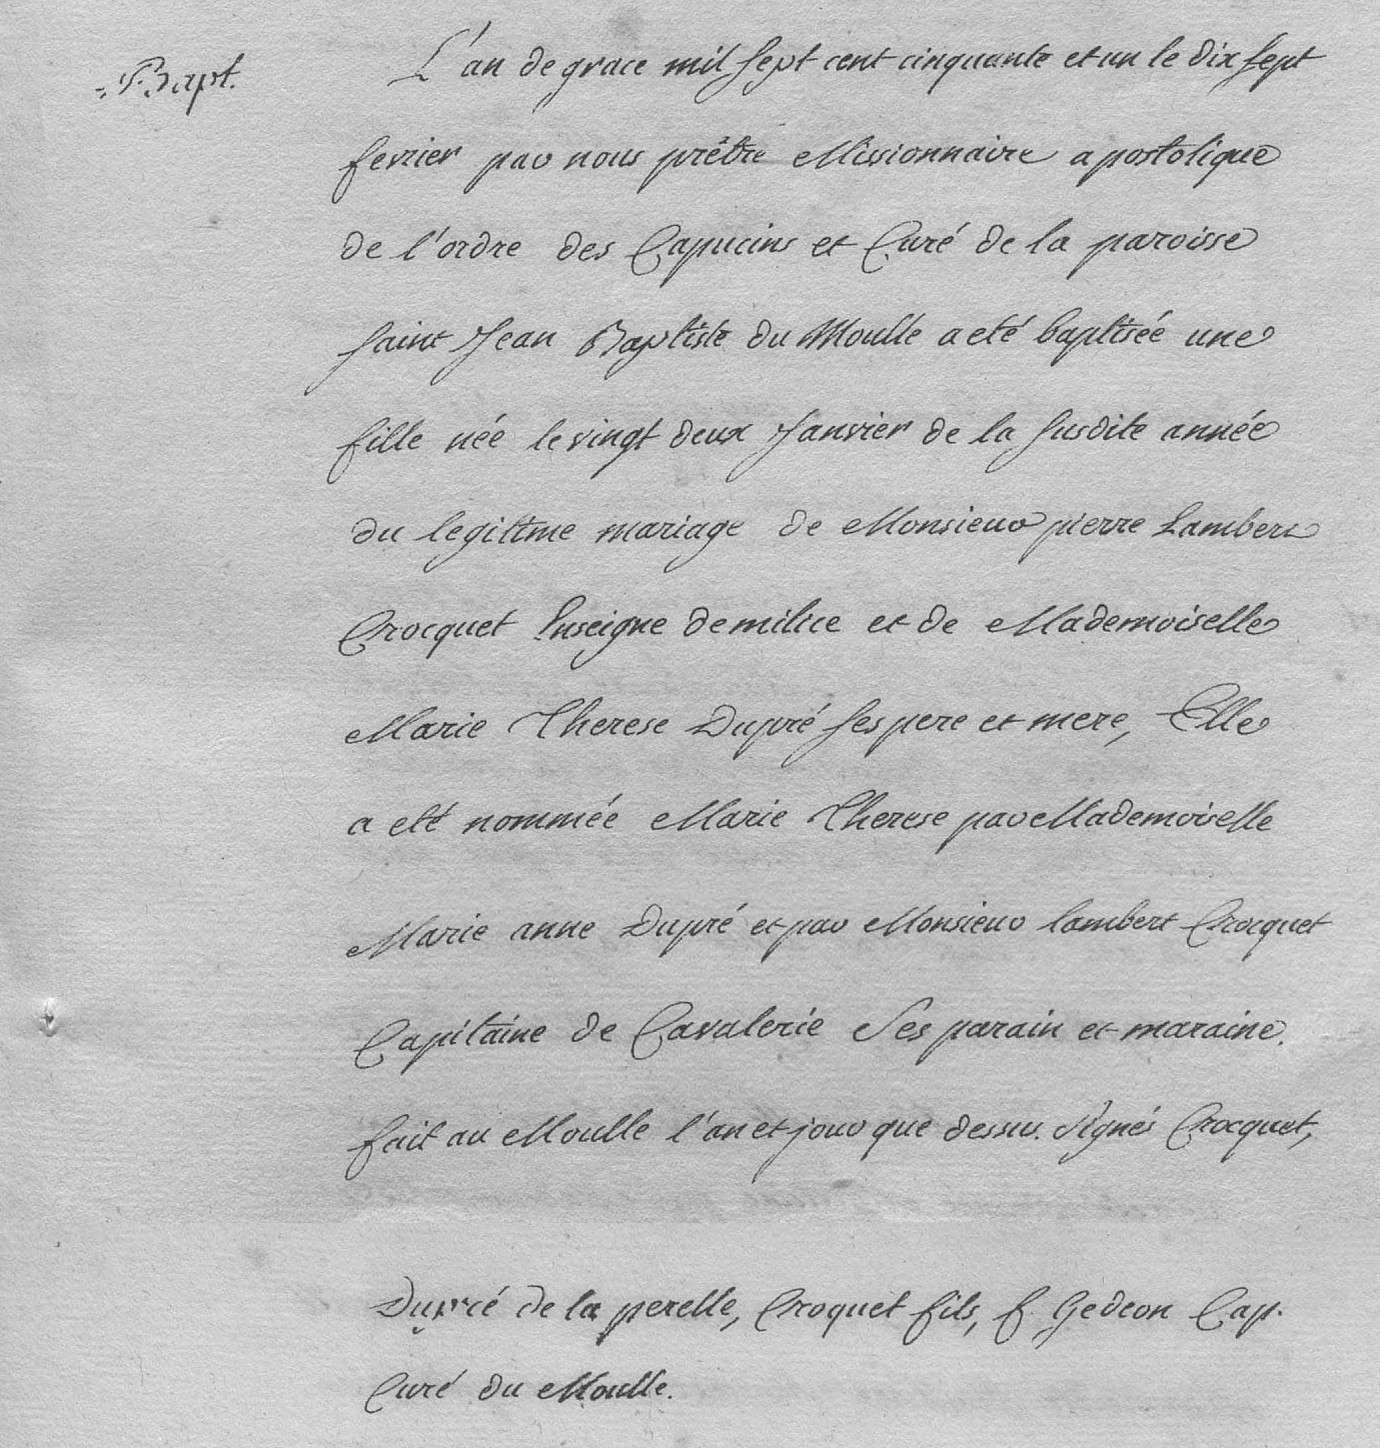 Bapt.
L'an de grace mil sept cent cinquante et un le dix sept
fevrier par nous prêtre Missionnaire apostolique
de l'ordre des Capucins et Curé de la paroisse
saint Jean Baptiste du Moulle a eté baptisée une
fille née le vingt deux Janvier de la susdite année
du legitime mariage de Monsieur pierre Lambert
Crocquet Enseigne de milice et de Mademoiselle
Marie Therese Dupré ses pere et mere, Elle
a eté nommée Marie Therese par Mademoiselle
Marie anne Dupré et par Monsieur lambert Crocquet
Capitaine de Cavalerie Ses parain et maraine.
fait au Moulle l'an et jour que dessus. Signés Crocquet,
Dupré de la perelle, Croquet fils, f. Gedeon Cap.
Curé du Moulle.